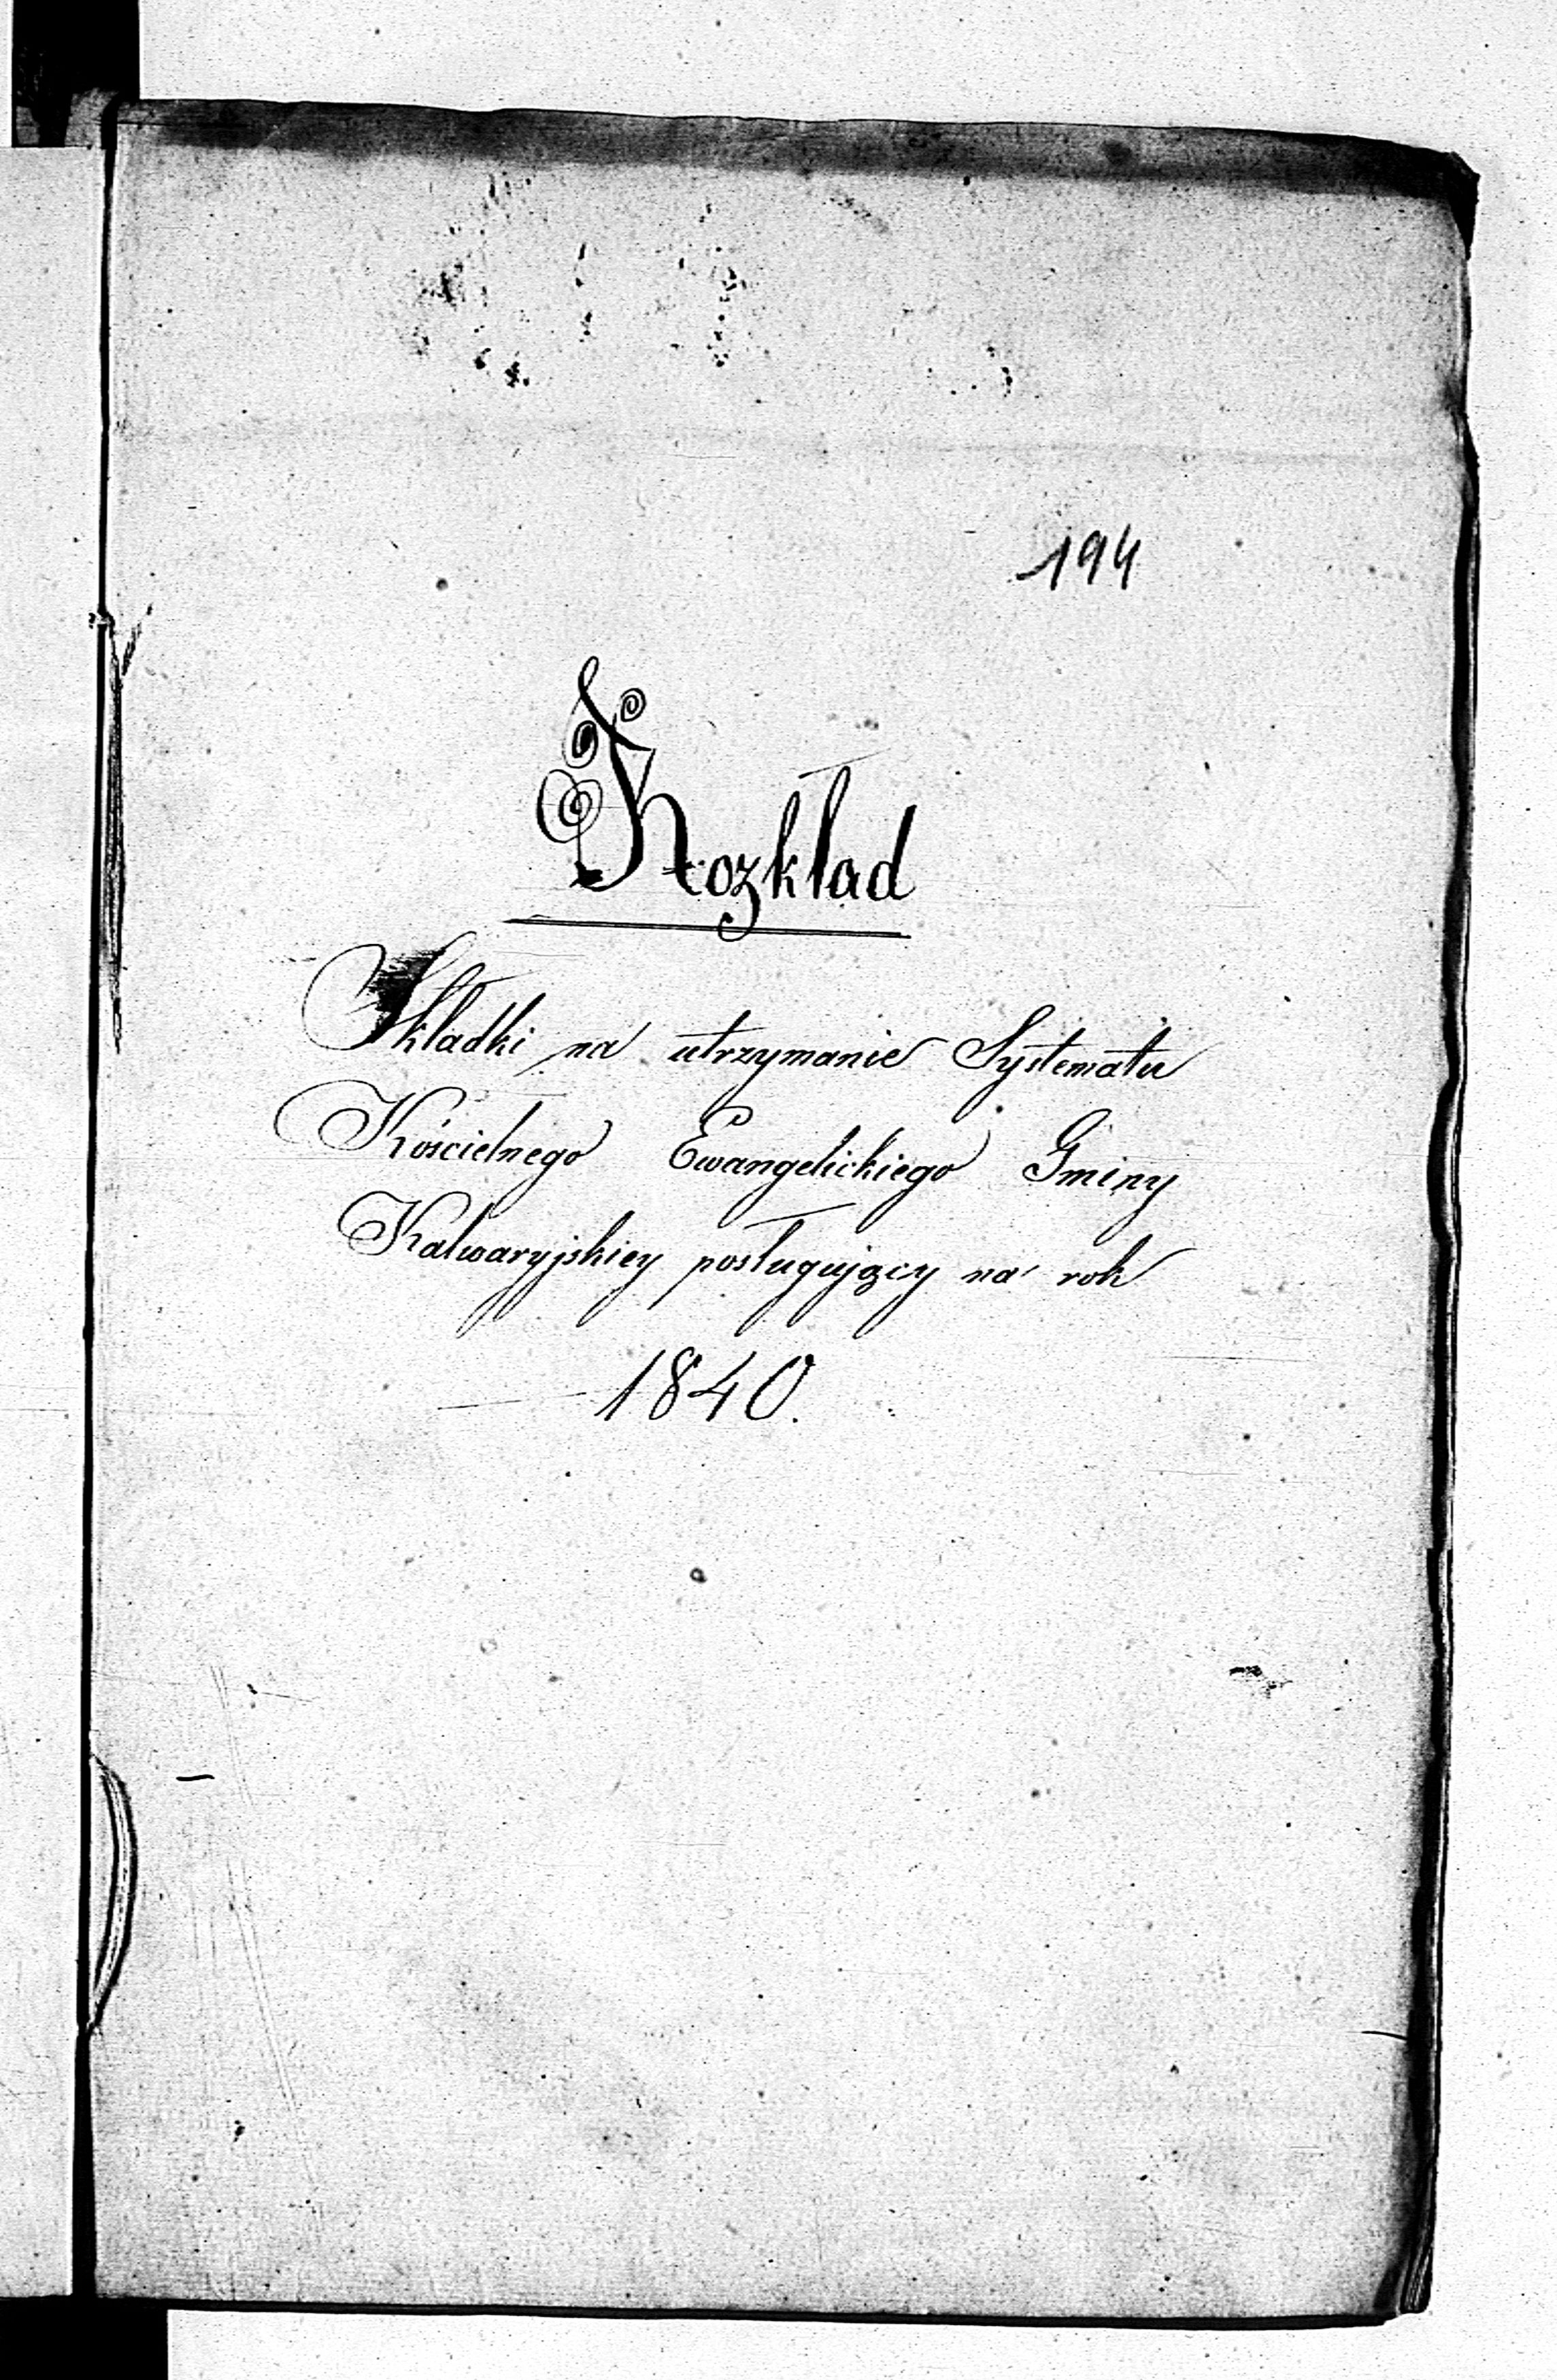 194
Rozkład
Składki na utrzymanie Systematu
Kościelnego Ewangelickiego Gminy
Kalwaryjskiey posługujący na rok
1840.